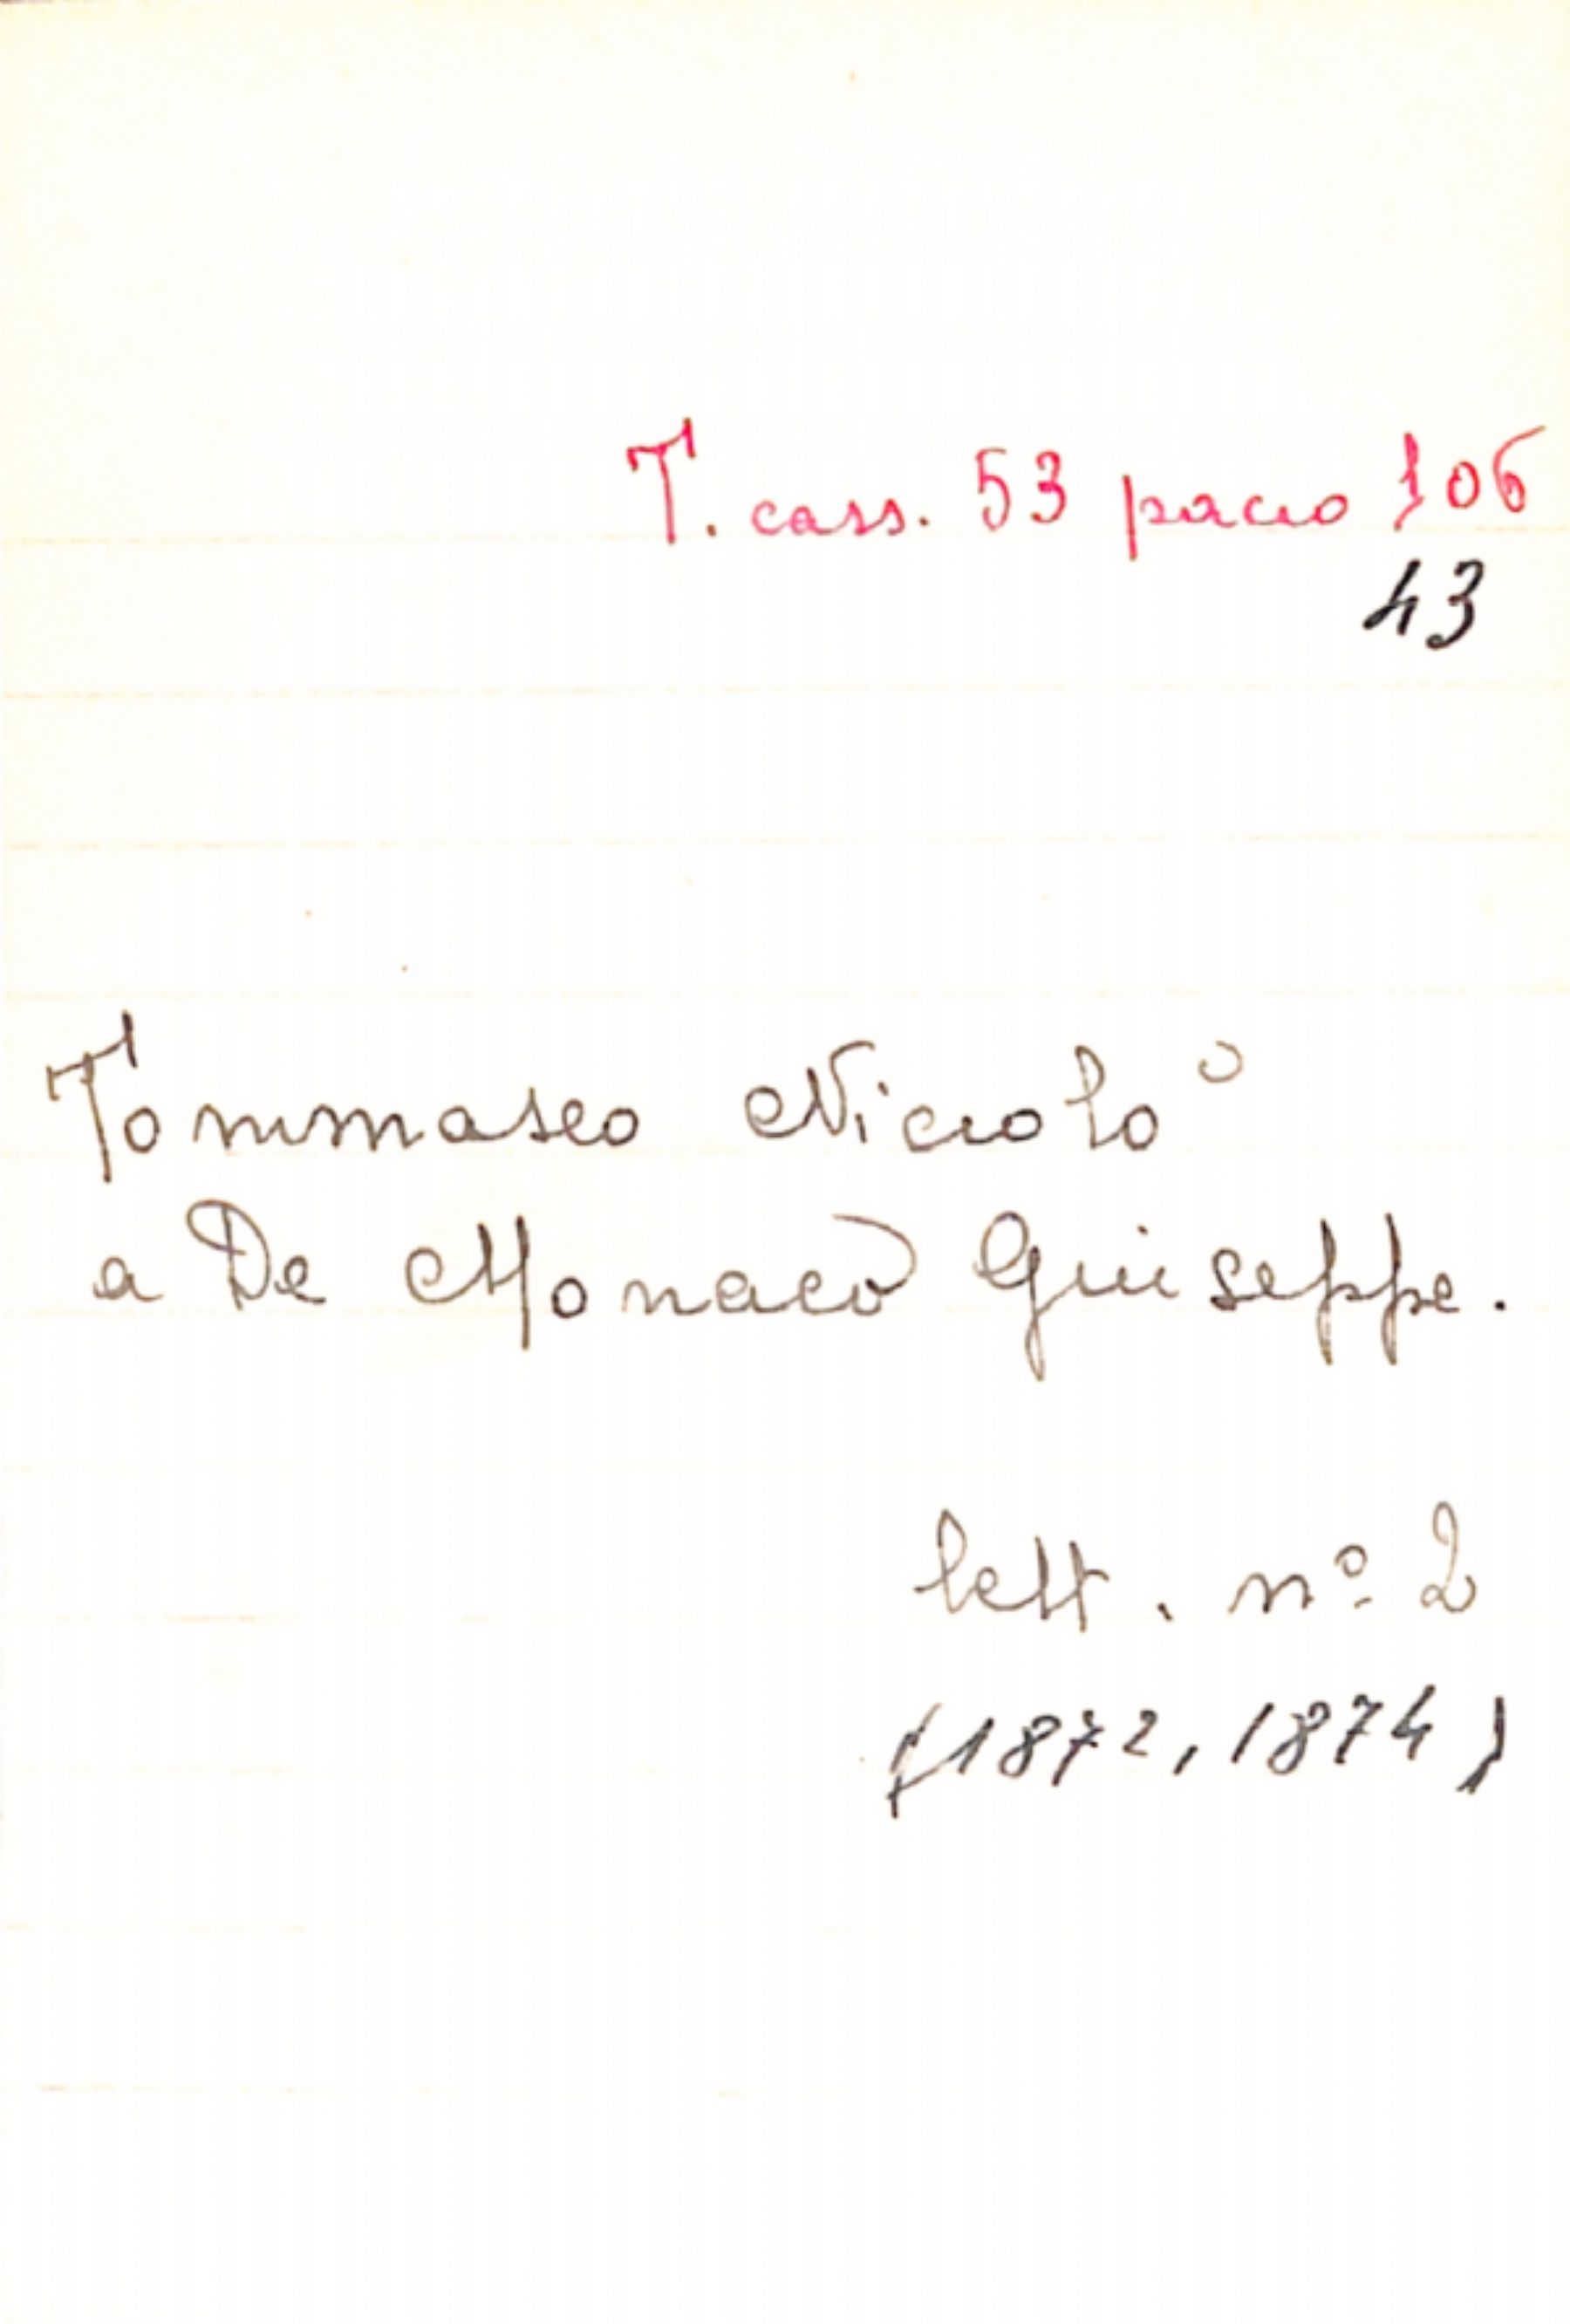 T. cass. 53 pacco 106
43
Tommaseo Niccolò
a De Monaco Giuseppe.
lett. nº 2
(1872, 1874)